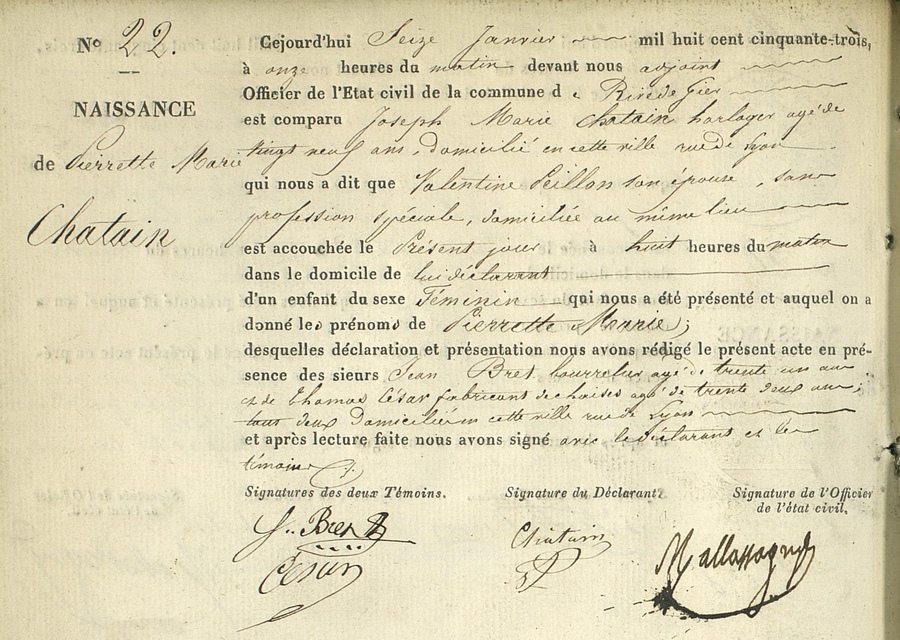 N° 22.
NAISSANCE
de Pierrette Marie
Chatain
Cejourd'hui Seize Janvier mil huit cent cinquante-trois,
à onze heures du matin devant nous adjoint
Officier de l'Etat civil de la commune d e Rive de Gier
est comparu Joseph Marie Chatain horloger agé de
vingt neuf ans, domicilié en cette ville rue de Lyon
qui nous a dit que Valentine Peillon son épouse, sans
profession spéciale, domiciliée au même lieu
est accouchée le Présent jour à huit heures du matin
dans le domicile de lui déclarant
d'un enfant du sexe Féminin qui nous a été présenté et auquel on a
donné les prénoms de Pierrette Marie;
desquelles déclaration et présentation nous avons rédigé le présent acte en pré-
sence des sieurs Jean Bret bourrelier agé de trente un ans
et de Thomas César fabricant de chaises agé de trente deux ans;
tous deux Domiciliés en cette ville rue de Lyon
et après lecture faite nous avons signé avec le déclarant et les
témoins
Signatures des deux Témoins.
Signature du Déclarant
Signature de l'Officier
de l'état civil.
Bret
César
Chatain